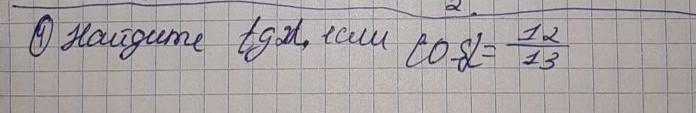 2.
④ Найдите tgα, если cosα = 12/13